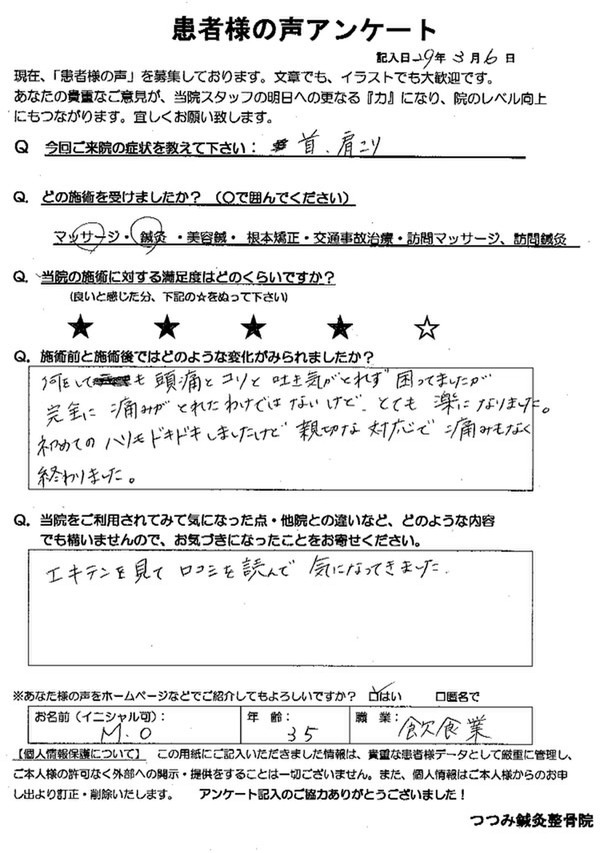 患者様の声アンケート
記入日29年3月6日
現在、「患者様の声」を募集しております。文章でも、イラストでも大歓迎です。
あなたの貴重なご意見が、当院スタッフの明日への更なる『力』になり、院のレベル向上
にもつながります。宜しくお願い致します。
Q 今回ご来院の症状を教えて下さい： 首、肩こり
Q. どの施術を受けましたか？（○で囲んでください）
マッサージ・鍼灸・美容鍼・根本矯正・交通事故治療・訪問マッサージ、訪問鍼灸
Q. 当院の施術に対する満足度はどのくらいですか？
(良いと感じた分、下記の☆をぬって下さい)
★ ★ ★ ★ ☆
Q. 施術前と施術後ではどのような変化がみられましたか？
何をしても 頭痛とコリと吐き気がとれず 困ってましたが
完全に 痛みがとれたわけではないけど、とても 楽になりました。
初めてのハリもドキドキしましたけど 親切な対応で 痛みもなく
終わりました。
Q. 当院をご利用されてみて気になった点・他院との違いなど、どのような内容
でも構いませんので、お気づきになったことをお寄せください。
エキテンを見て 口コミを読んで 気になってきました。
※あなた様の声をホームページなどでご紹介してもよろしいですか？ ☑はい □匿名で
お名前（イニシャル可）： M.O 年 齢： 35 職 業： 飲食業
【個人情報保護について】 この用紙にご記入いただきました情報は、貴重な患者様データとして厳重に管理し、
ご本人様の許可なく外部への開示・提供をすることは一切ございません。また、個人情報はご本人様からのお申
し出より訂正・削除いたします。 アンケート記入のご協力ありがとうございました！
つつみ鍼灸整骨院